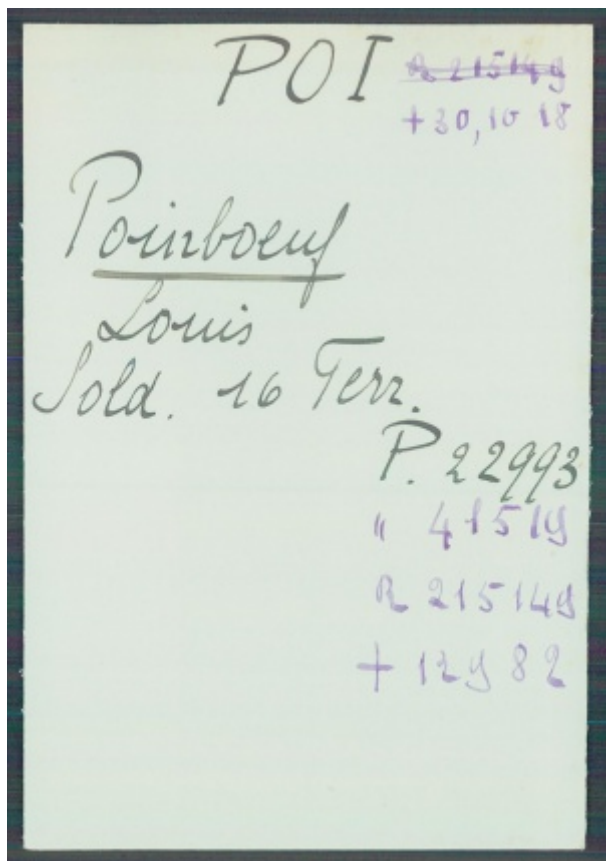 POI
R 215149
+ 30,10 18
Poinboeuf
Louis
Sold. 16 Terr.
P. 22993
" 41519
R 215149
+ 12982